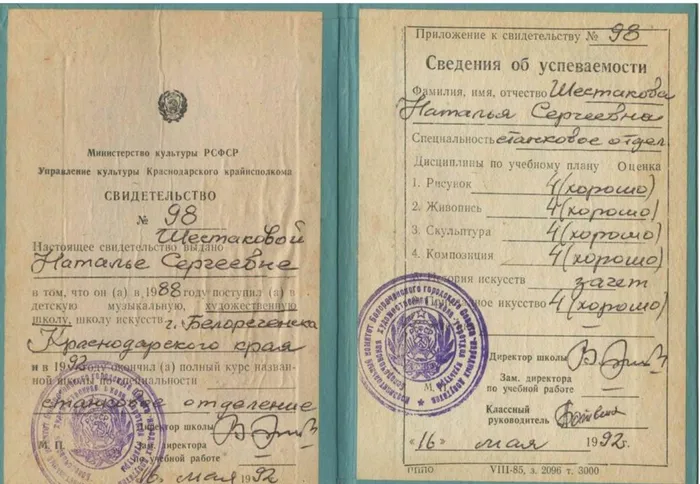 Министерство культуры РСФСР
Управление культуры Краснодарского крайисполкома
СВИДЕТЕЛЬСТВО
№ 98
Настоящее свидетельство выдано Шестаковой
Наталье Сергеевне
в том, что он (а) в 1988 году поступил (а) в
детскую музыкальную, художественную
школу, школу искусств г. Белореченска
Краснодарского края
и в 1992 году окончил (а) полный курс назван-
ной школы по специальности
станковое отделение
Директор школы
М. П. Зам. директора
по учебной работе
16 мая 1992
Приложение к свидетельству № 98
Сведения об успеваемости
Фамилия, имя, отчество Шестакова
Наталья Сергеевна
Специальность станковое отдел.
Дисциплины по учебному плану Оценка
1. Рисунок 4 (хорошо)
2. Живопись 4 (хорошо)
3. Скульптура 4 (хорошо)
4. Композиция 4 (хорошо)
История искусств зачет
ное искуство 4 (хорошо)
Директор школы
М.
Зам. директора
по учебной работе
Классный
руководитель
«16» мая 1992.
VIII-85, з. 2096 т. 3000